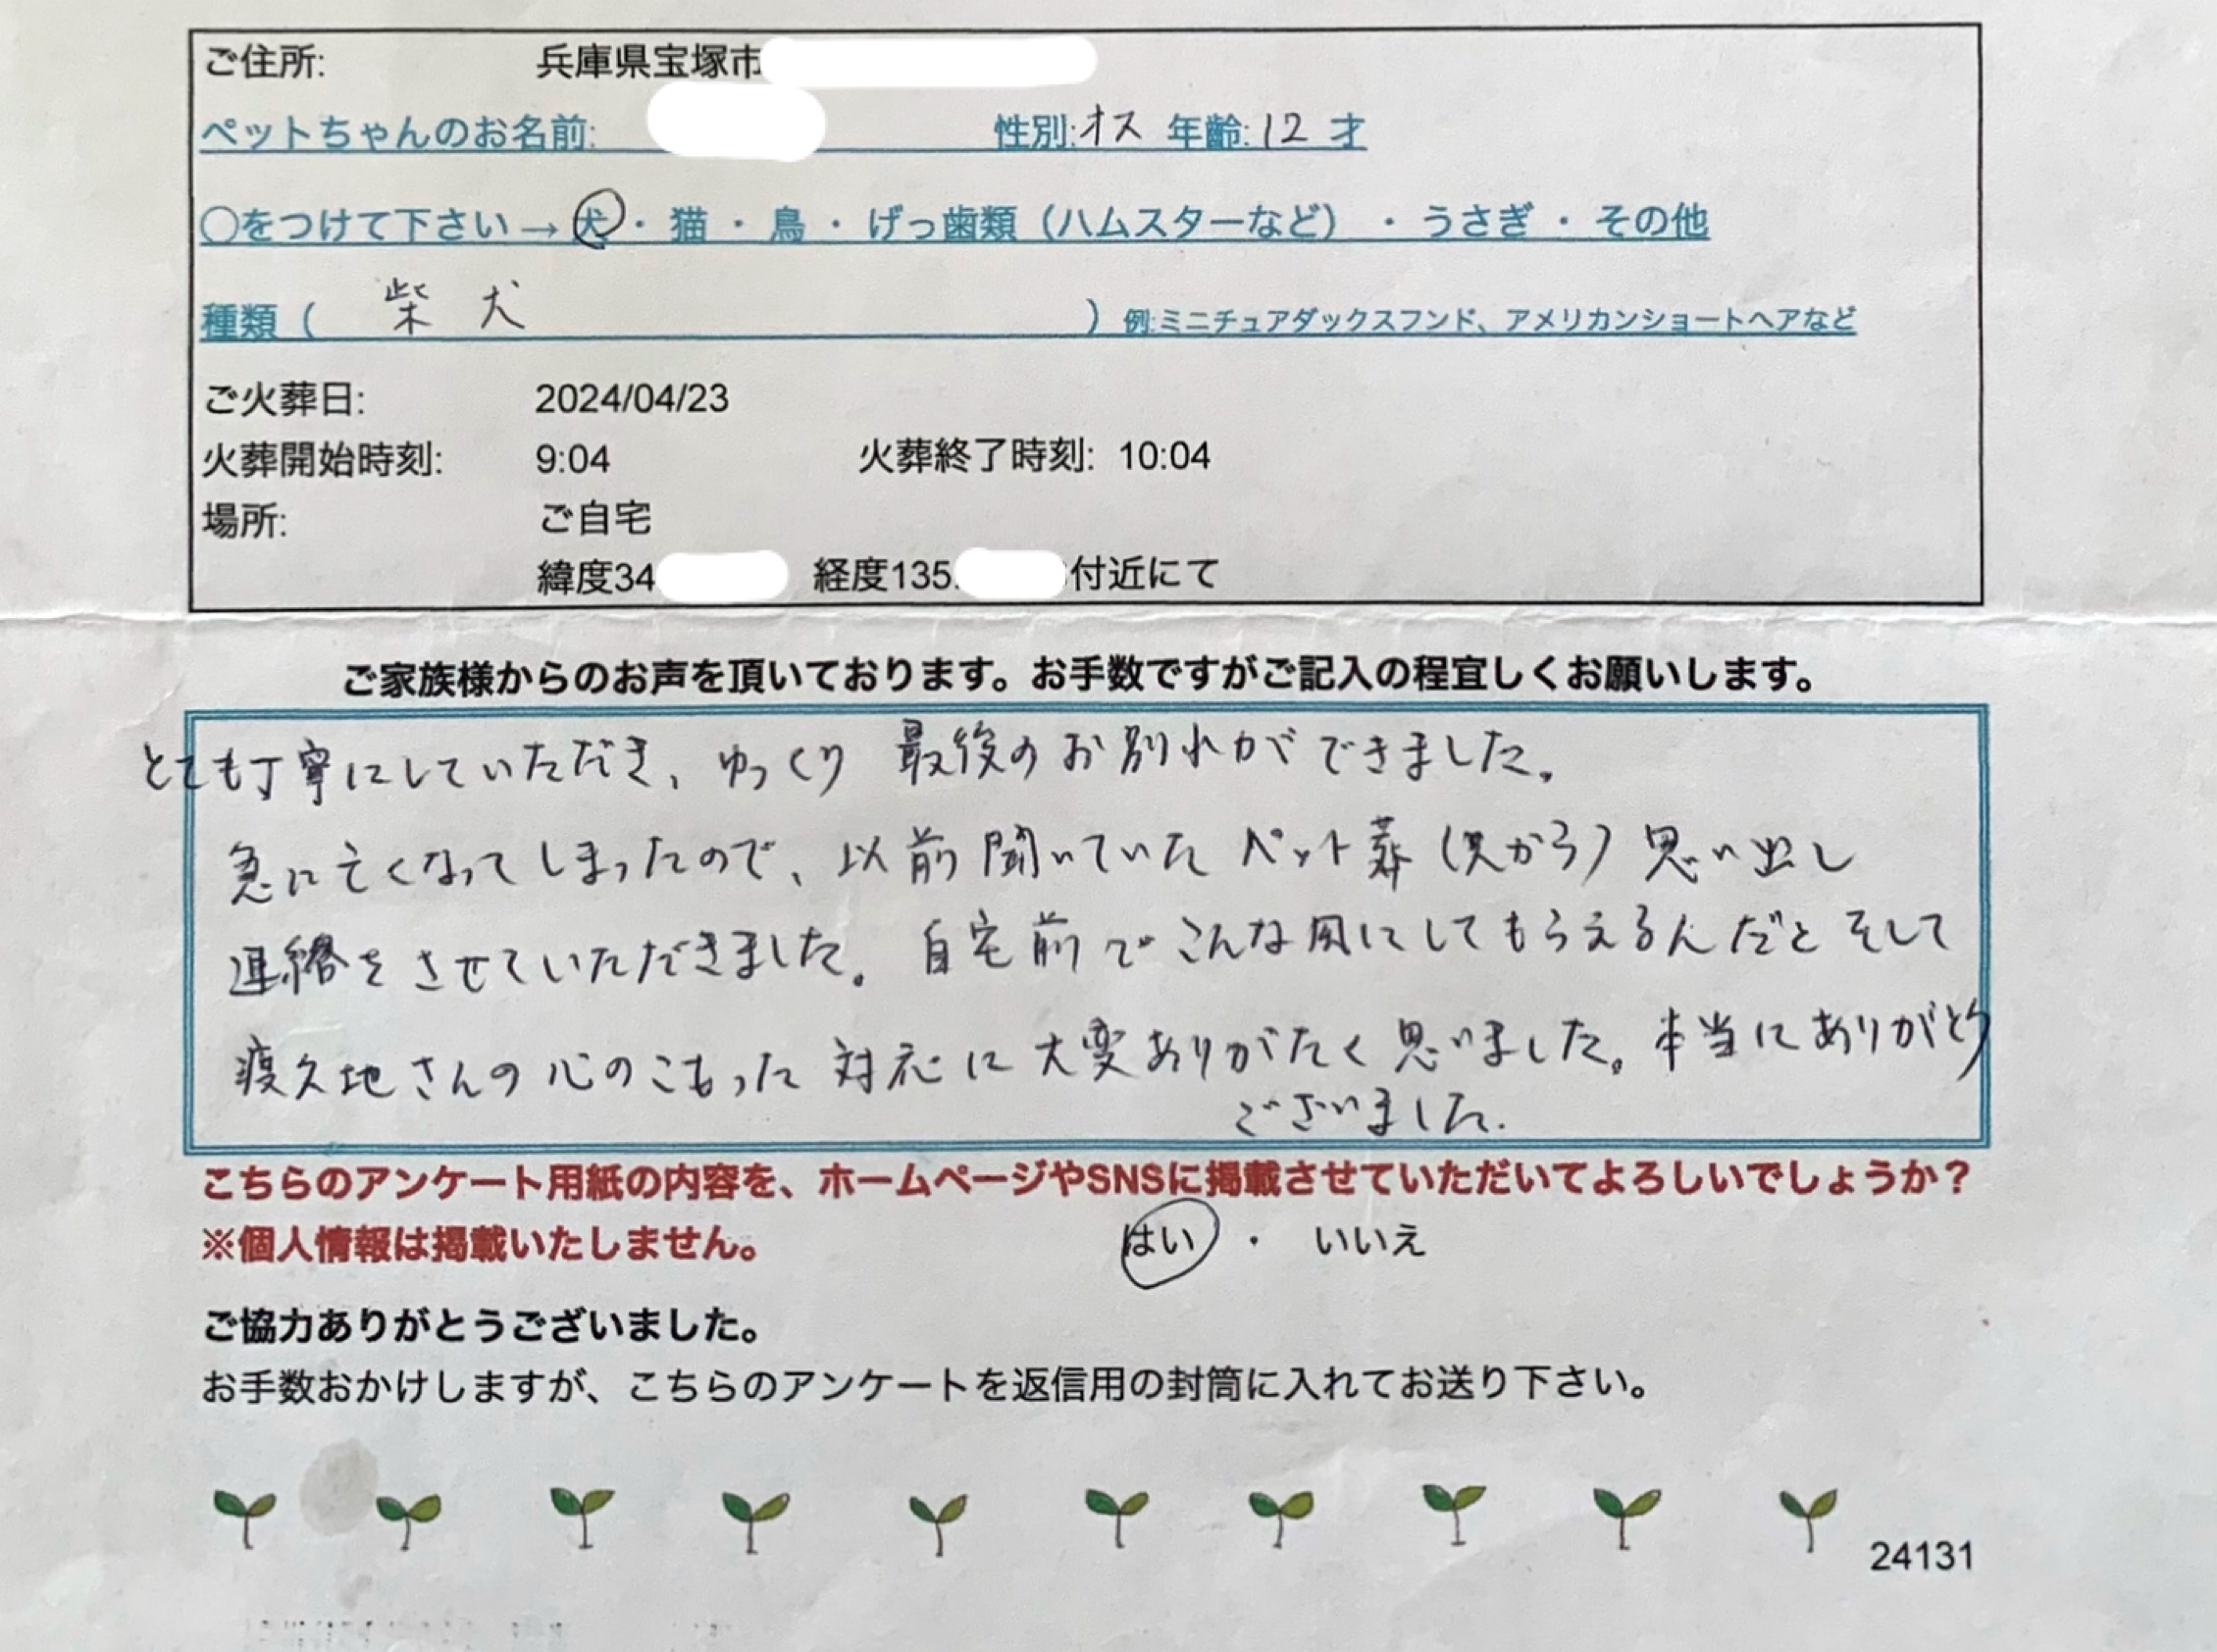 ご住所: 兵庫県宝塚市
ペットちゃんのお名前: 性別:オス 年齢:12 才
〇をつけて下さい→ 犬 ・ 猫 ・ 鳥 ・ げっ歯類（ハムスターなど） ・ うさぎ ・ その他
種類（ 柴犬 ）例:ミニチュアダックスフンド、アメリカンショートヘアなど
ご火葬日: 2024/04/23
火葬開始時刻: 9:04 火葬終了時刻: 10:04
場所: ご自宅
緯度34 経度135. 付近にて
ご家族様からのお声を頂いております。お手数ですがご記入の程宜しくお願いします。
とても丁寧にしていただき、ゆっくり 最後のお別れができました。
急に亡くなってしまったので、以前聞いていた ペット葬 (から) 思い出し
連絡をさせていただきました。自宅前でこんな風にしてもらえるんだと そして
さんの 心のこもった 対応に 大変ありがたく思いました。本当にありがとう
ございました.
こちらのアンケート用紙の内容を、ホームページやSNSに掲載させていただいてよろしいでしょうか？
※個人情報は掲載いたしません。 はい ・ いいえ
ご協力ありがとうございました。
お手数おかけしますが、こちらのアンケートを返信用の封筒に入れてお送り下さい。
24131